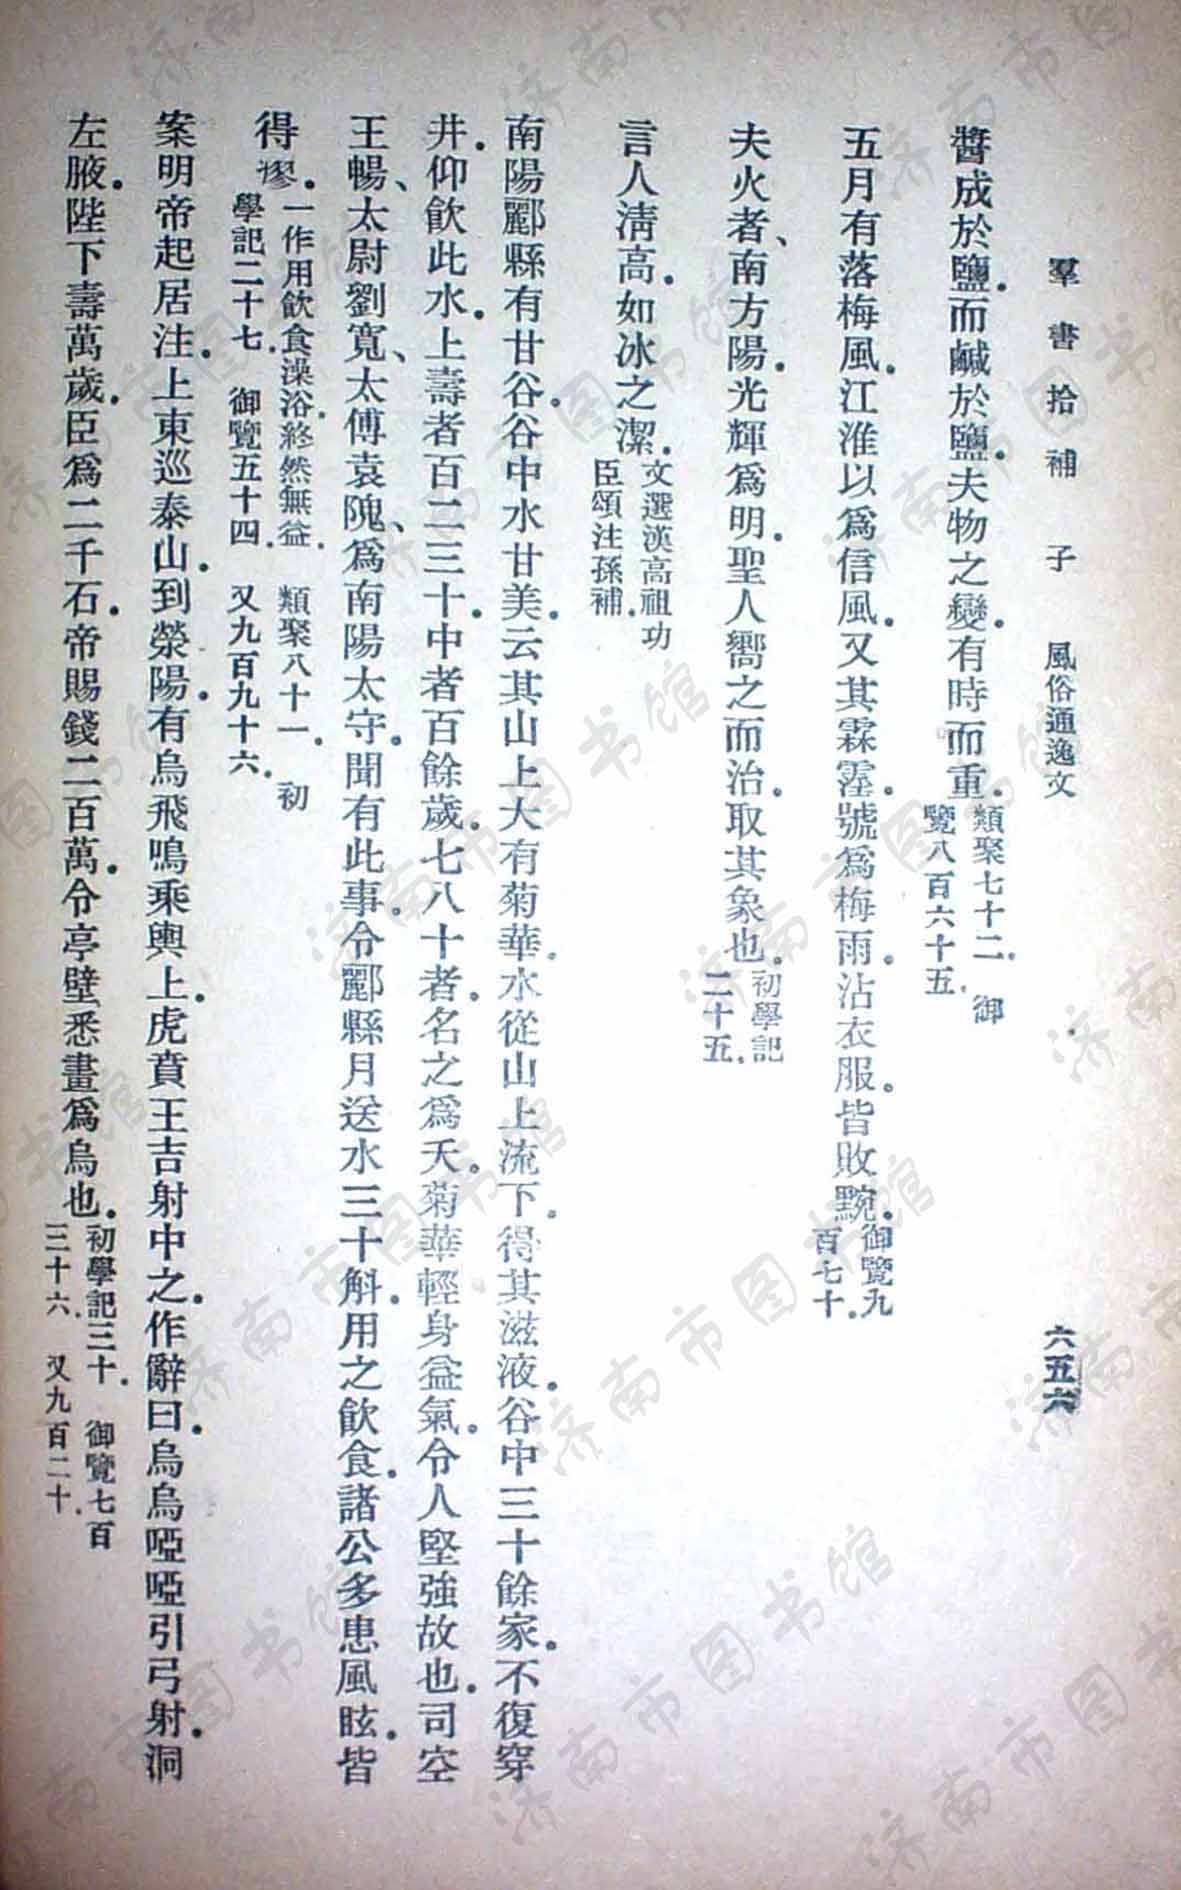 羣書拾補 子 風俗通逸文 六五六
醬成於鹽.而鹹於鹽.夫物之變.有時而重.類聚七十二. 御
覽八百六十五.
五月有落梅風.江淮以爲信風.又其霖霪.號爲梅雨.沾衣服.皆敗黦.御覽九
百七十.
夫火者、南方陽.光輝爲明.聖人嚮之而治.取其象也.初學記
二十五.
言人淸高.如冰之潔.文選漢高祖功
臣頌注孫補.
南陽酈縣有甘谷.谷中水甘美.云其山上大有菊華.水從山上流下.得其滋液.谷中三十餘家.不復穿
井.仰飮此水.上壽者百二三十.中者百餘歲.七八十者.名之爲夭.菊華輕身益氣.令人堅強故也.司空
王暢、太尉劉寬、太傅袁隗、爲南陽太守.聞有此事.令酈縣月送水三十斛.用之飮食.諸公多患風眩.皆
得瘳.一作用飮食澡浴.終然無益. 類聚八十一. 初
學記二十七. 御覽五十四. 又九百九十六.
案明帝起居注.上東巡泰山.到滎陽.有烏飛鳴乘輿上.虎賁王吉射中之.作辭曰.烏烏啞啞.引弓射.洞
左腋.陛下壽萬歲.臣爲二千石.帝賜錢二百萬.令亭壁.悉畫爲烏也.初學記三十. 御覽七百
三十六. 又九百二十.
济南市图书馆